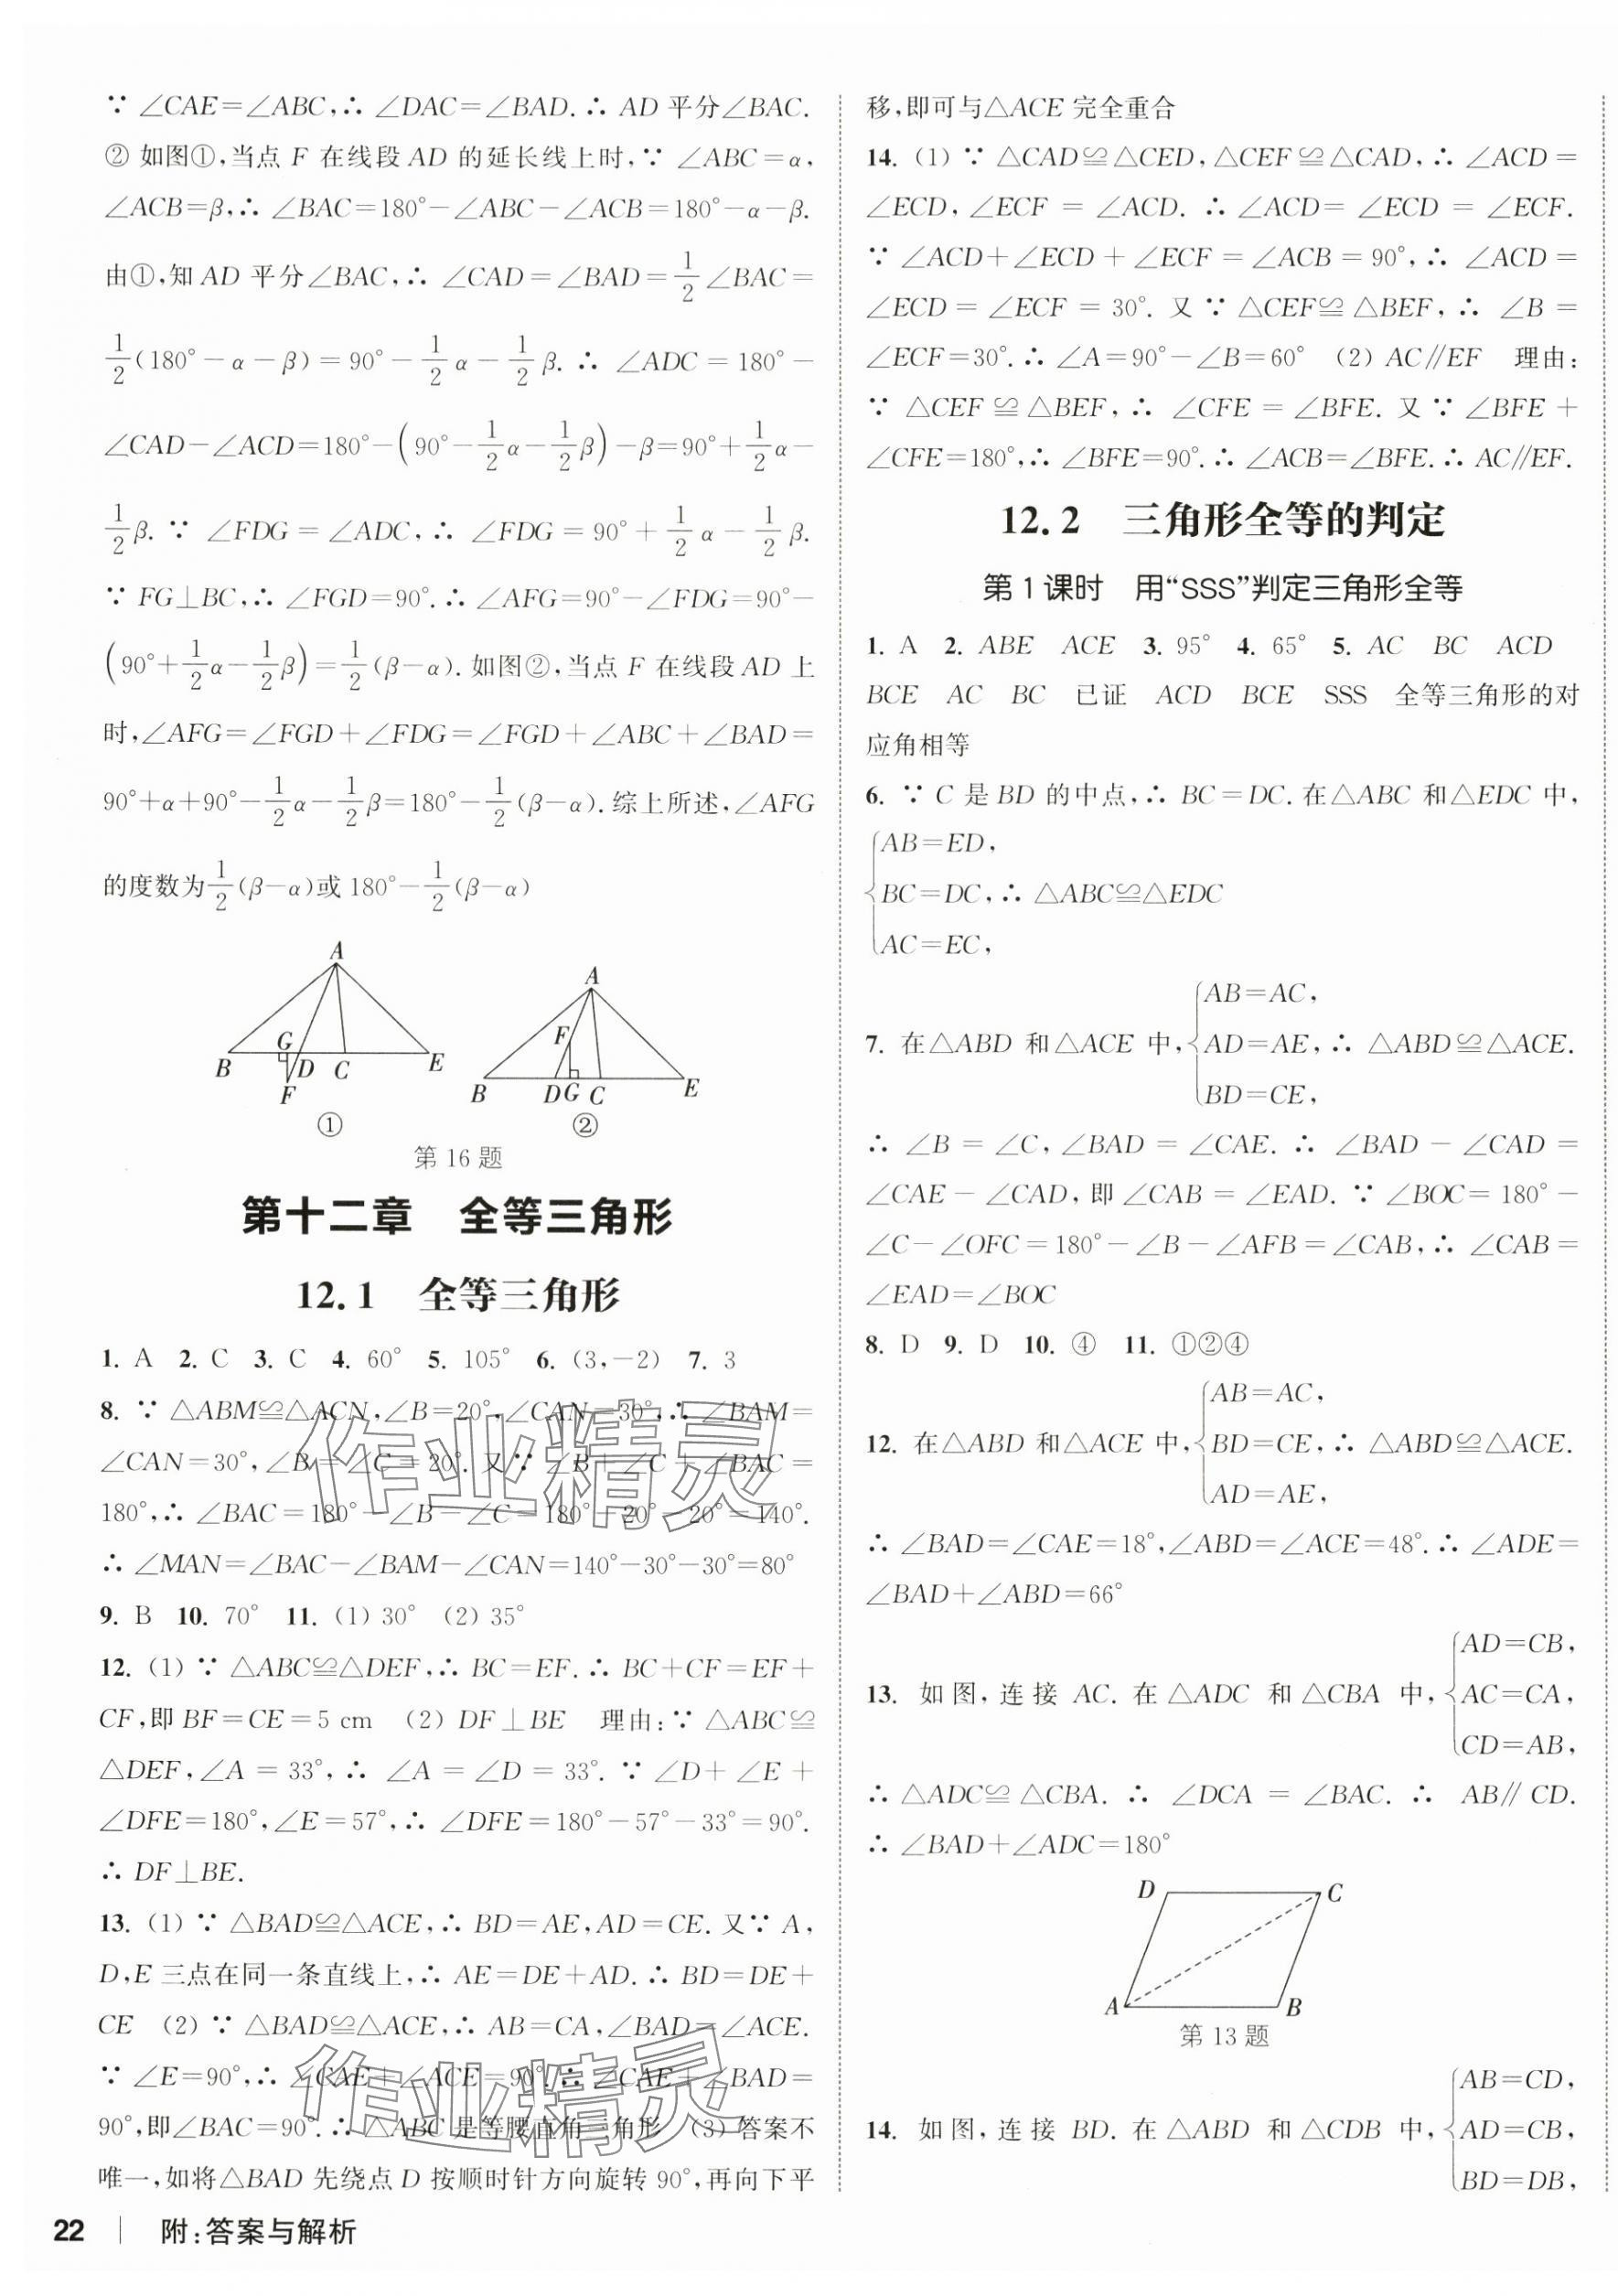 ∵ ∠CAE=∠ABC,∴ ∠DAC=∠BAD.∴ AD 平分∠BAC.
② 如图①,当点 F 在线段 AD 的延长线上时,∵ ∠ABC=α,
∠ACB=β,∴ ∠BAC=180°-∠ABC-∠ACB=180°-α-β.
由①,知 AD 平分∠BAC,∴ ∠CAD=∠BAD=1/2∠BAC=
1/2(180°-α-β)=90°-1/2α-1/2β.∴ ∠ADC=180°-
∠CAD-∠ACD=180°-(90°-1/2α-1/2β)-β=90°+1/2α-
1/2β.∵ ∠FDG=∠ADC,∴ ∠FDG=90°+1/2α-1/2β.
∵ FG⊥BC,∴ ∠FGD=90°.∴ ∠AFG=90°-∠FDG=90°-
(90°+1/2α-1/2β)=1/2(β-α).如图②,当点 F 在线段 AD 上
时,∠AFG=∠FGD+∠FDG=∠FGD+∠ABC+∠BAD=
90°+α+90°-1/2α-1/2β=180°-1/2(β-α).综上所述,∠AFG
的度数为1/2(β-α)或 180°-1/2(β-α)
A
G
B D C E
F
①
A
F
B D G C E
②
第 16 题
第十二章 全等三角形
12.1 全等三角形
1. A 2. C 3. C 4. 60° 5. 105° 6. (3,-2) 7. 3
8. ∵ △ABM≌△ACN,∠B=20°,∠CAN=30°,∴ ∠BAM=
∠CAN=30°,∠B=∠C=20°.又∵ ∠B+∠C+∠BAC=
180°,∴ ∠BAC=180°-∠B-∠C=180°-20°-20°=140°.
∴ ∠MAN=∠BAC-∠BAM-∠CAN=140°-30°-30°=80°
9. B 10. 70° 11. (1) 30° (2) 35°
12. (1) ∵ △ABC≌△DEF,∴ BC=EF.∴ BC+CF=EF+
CF,即 BF=CE=5 cm (2) DF⊥BE 理由:∵ △ABC≌
△DEF,∠A=33°,∴ ∠A=∠D=33°.∵ ∠D+∠E+
∠DFE=180°,∠E=57°,∴ ∠DFE=180°-57°-33°=90°.
∴ DF⊥BE.
13. (1) ∵ △BAD≌△ACE,∴ BD=AE,AD=CE.又∵ A,
D,E 三点在同一条直线上,∴ AE=DE+AD.∴ BD=DE+
CE (2) ∵ △BAD≌△ACE,∴ AB=CA,∠BAD=∠ACE.
∵ ∠E=90°,∴ ∠CAE+∠ACE=90°.∴ ∠CAE+∠BAD=
90°,即∠BAC=90°.∴ △ABC 是等腰直角三角形 (3) 答案不
唯一,如将△BAD 先绕点 D 按顺时针方向旋转 90°,再向下平
作业精灵
作业精灵
22 | 附:答案与解析
移,即可与△ACE 完全重合
14. (1) ∵ △CAD≌△CED,△CEF≌△CAD,∴ ∠ACD=
∠ECD,∠ECF=∠ACD.∴ ∠ACD=∠ECD=∠ECF.
∵ ∠ACD+∠ECD+∠ECF=∠ACB=90°,∴ ∠ACD=
∠ECD=∠ECF=30°.又∵ △CEF≌△BEF,∴ ∠B=
∠ECF=30°.∴ ∠A=90°-∠B=60° (2) AC∥EF 理由:
∵ △CEF≌△BEF,∴ ∠CFE=∠BFE.又∵ ∠BFE+
∠CFE=180°,∴ ∠BFE=90°.∴ ∠ACB=∠BFE.∴ AC∥EF.
12.2 三角形全等的判定
第 1 课时 用“SSS”判定三角形全等
1. A 2. ABE ACE 3. 95° 4. 65° 5. AC BC ACD
BCE AC BC 已证 ACD BCE SSS 全等三角形的对
应角相等
6. ∵ C 是 BD 的中点,∴ BC=DC.在△ABC 和△EDC 中,
AB=ED,
BC=DC,∴ △ABC≌△EDC
AC=EC,
AB=AC,
7. 在△ABD 和△ACE 中,AD=AE,∴ △ABD≌△ACE.
BD=CE,
∴ ∠B=∠C,∠BAD=∠CAE.∴ ∠BAD-∠CAD=
∠CAE-∠CAD,即∠CAB=∠EAD.∵ ∠BOC=180°-
∠C-∠OFC=180°-∠B-∠AFB=∠CAB,∴ ∠CAB=
∠EAD=∠BOC
8. D 9. D 10. ④ 11. ①②④
AB=AC,
12. 在△ABD 和△ACE 中,BD=CE,∴ △ABD≌△ACE.
AD=AE,
∴ ∠BAD=∠CAE=18°,∠ABD=∠ACE=48°.∴ ∠ADE=
∠BAD+∠ABD=66°
AD=CB,
13. 如图,连接 AC.在△ADC 和△CBA 中,AC=CA,
CD=AB,
∴ △ADC≌△CBA.∴ ∠DCA=∠BAC.∴ AB∥CD.
∴ ∠BAD+∠ADC=180°
D C
A B
第 13 题
AB=CD,
14. 如图,连接 BD.在△ABD 和△CDB 中,AD=CB,
BD=DB,